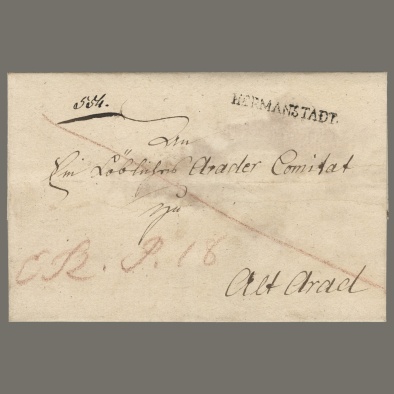 554.
HERMANSTADT.
An
Ein Löbliches Arader Comitat
zu
P. 18
Alt Arad